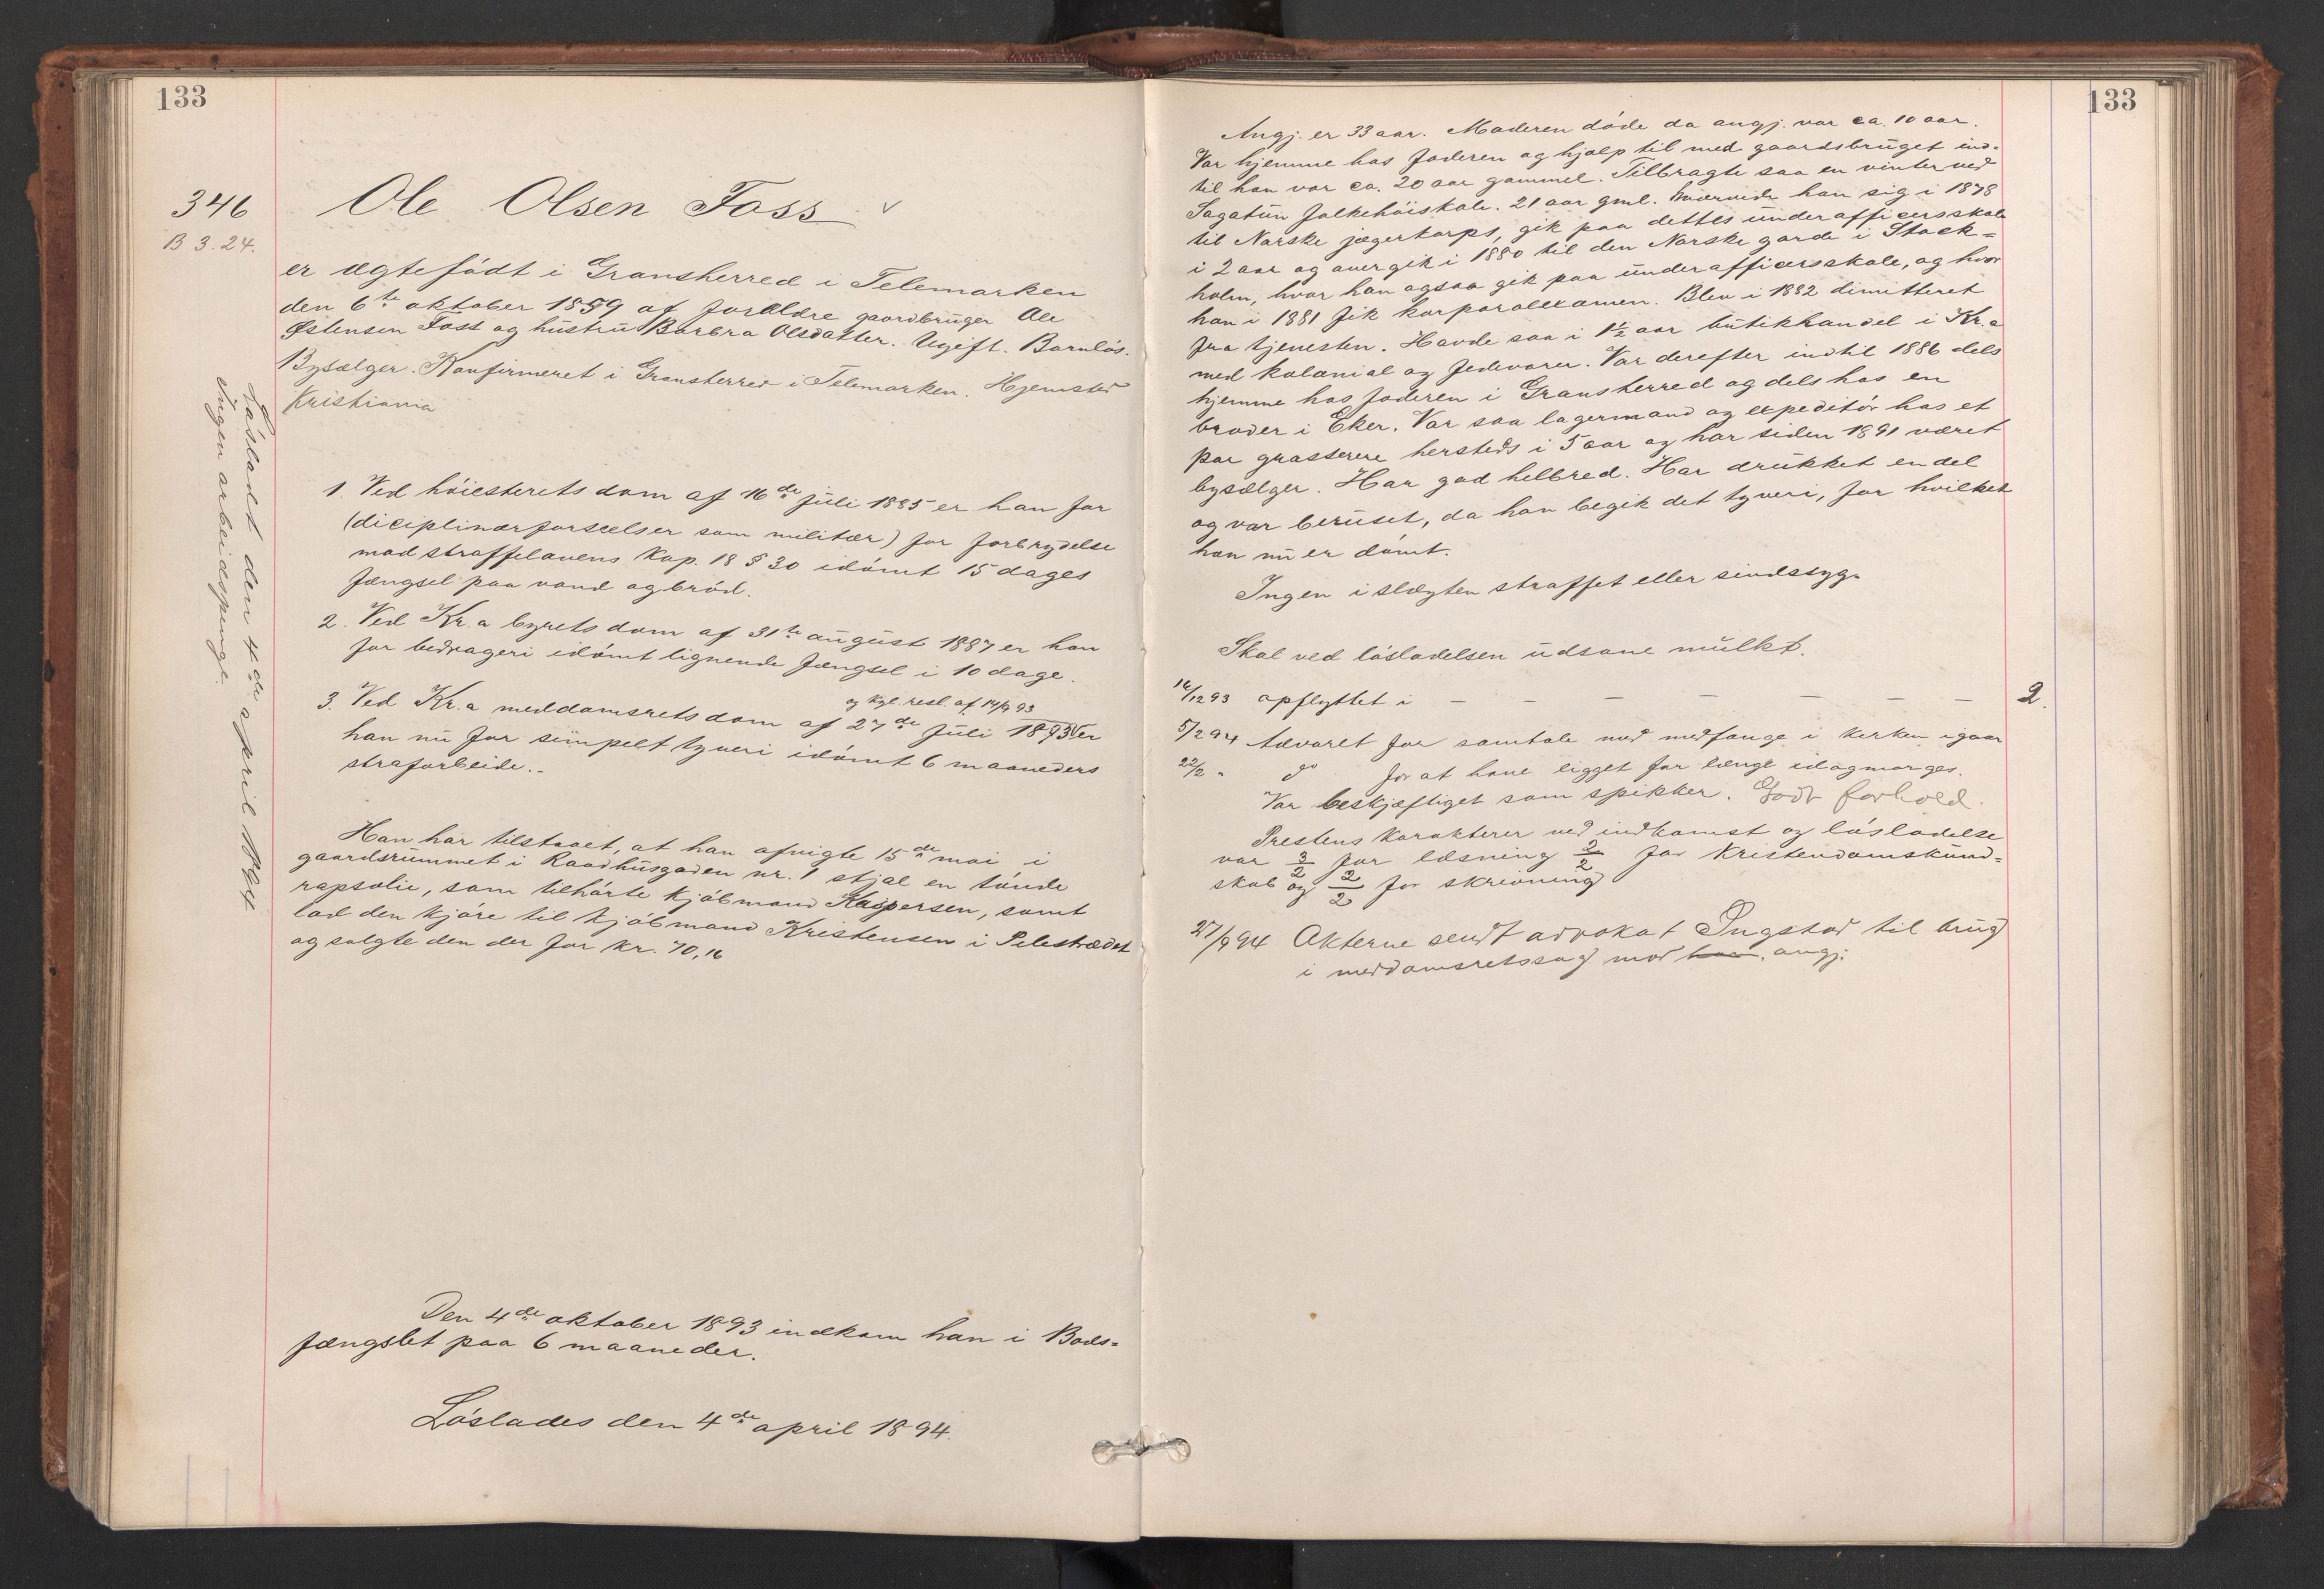 133
346
B 3. 24.
Ole Olsen Foss
er ægtefødt i Gransherred i Telemarken
den 6te oktober 1859 af forældre gaardbruger Ole
Østensen Foss og hustru Barbra Olsdatter. Ugift. Barnløs.
Bysælger. Konfirmeret i Gransherred i Telemarken. Hjemsted
Kristiania
Løsladt den 4de april 1894
Ingen arbeidspenge.
1 Ved høiesterets dom af 16de juli 1885 er han for
(diciplinærforseelser som militær) for forbrydelse
mod straffelovens Kap. 18 § 30 idømt 15 dages
fængsel paa vand og brød.
2. Ved Kr.a byrets dom af 31te august 1887 er han
for bedrageri idømt lignende fængsel i 10 dage.
og kgl. resl. af 14/9 93
3. Ved Kr.a meddomsrets dom af 27de juli 1893 er
han nu for simpelt tyveri idømt 6 maaneders
strafarbeide.-
Han har tilstaaet, at han afvigte 15de mai i
gaardsrummet i Raadhusgaden nr. 1 stjal en tønde
rapsolie, som tilhørte kjøbmand Kaspersen, samt
lod den kjøre til kjøbmand Kristensen i Pilestrædet
og solgte den der for kr. 70,16
Den 4de oktober 1893 indkom han i Bods-
fængslet paa 6 maaneder.
Løslades den 4de april 1894.
133
Angj. er 33 aar. Moderen døde da angj. var ca. 10 aar.
Var hjemme hos faderen og hjalp til med gaardsbruget ind-
til han var ca. 20 aar gammel. Tilbragte saa en vinter ved
Sagatun folkehøiskole. 21 aar gml. hvervede han sig i 1878
til Norske jægerkorps, gik paa dettes underofficersskole
i 2 aar og overgik i 1880 til den Norske garde i Stock-
holm, hvor han ogsaa gik paa underofficersskole, og hvor
han i 1881 fik korporalexamen. Blev i 1882 dimitteret
fra tjenesten. Havde saa i 1½ aar butikhandel i Kr.a
med kolonial og fedevarer. Var derefter indtil 1886 dels
hjemme hos faderen i Gransherred og dels hos en
broder i Eker. Var saa lagermand og expeditør hos et
par grasserere hersteds i 5 aar og har siden 1891 været
bysælger. Har god helbred. Har drukket en del
og var beruset, da han begik det tyveri, for hvilket
han nu er dømt.
Ingen i slægten straffet eller sindssyg.
Skal ved løsladelsen udsone mulkt.
14/12 93 opflyttet i — — — — — — 2.
5/2 94 Advaret for samtale med medfange i kirken igaar
22/2 " do for at have ligget for længe idagmorges.
Var beskjæftiget som spikker. Godt forhold.
Prestens karakterer ved indkomst og løsladelse
var 3/2 for læsning 2/2 for kristendomskund-
skab og 2/2 for skrivning
27/9 94 Akterne sendt advokat Ingstad til brug
i meddomsretssag mod ham. angj.